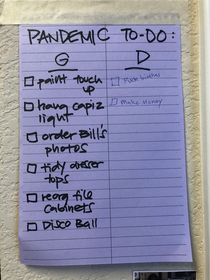 PANDEMIC TO-DO:
G
D
paint touch
up
hang capiz
light
order Bill's
photos
tidy dresser
tops
reorg file
cabinets
DISCO Ball
make money